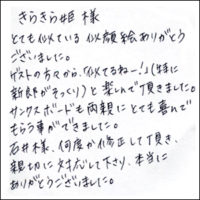 きらきら姫 様
とても似ている 似顔絵ありがとう
ございました。
ゲストの方々から、「似てるねー!」(特に
新郎がそっくり)と 喜んで頂きました。
サンクスボードも両親にとても喜んで
もらう事ができました。
石井様、何度か修正して頂き、
親切に対応して下さり、本当に
ありがとうございました。